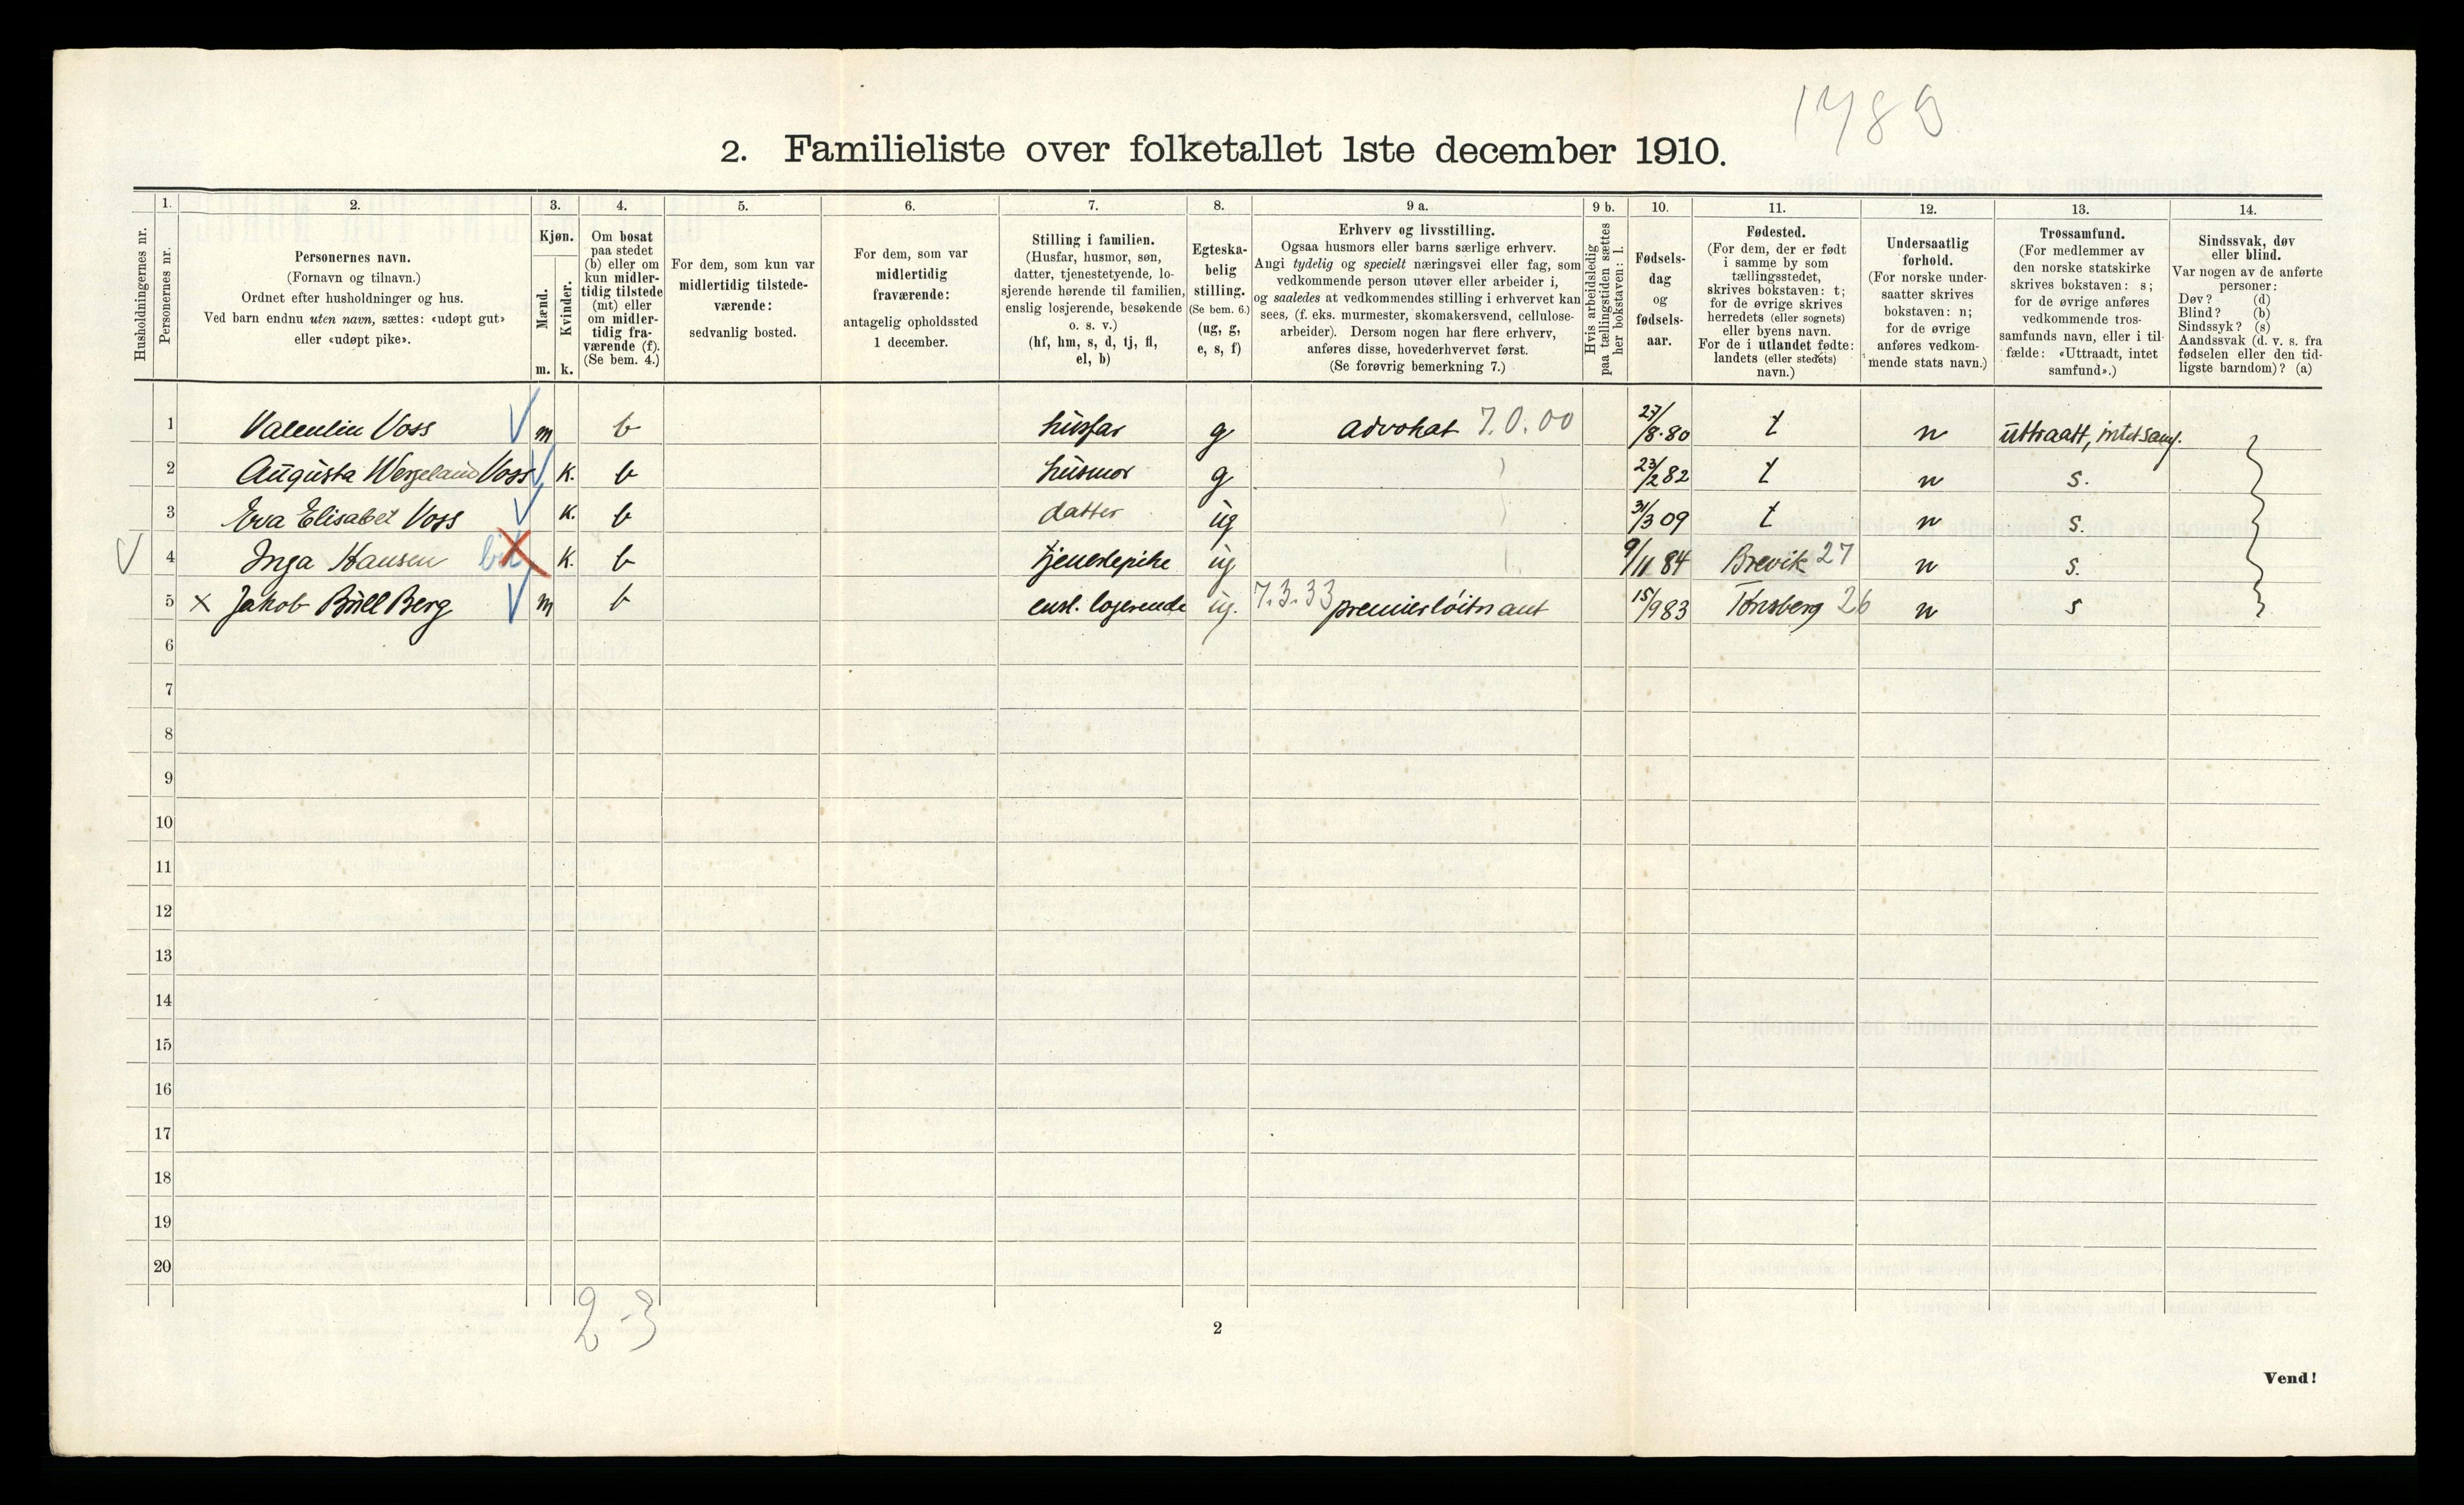 1480
2. Familieliste over folketallet 1ste december 1910.
Husholdningernes nr.
1.
Personernes nr.
2.
Personernes navn.
(Fornavn og tilnavn.)
Ordnet efter husholdninger og hus.
Ved barn endnu uten navn, sættes: «udøpt gut»
eller «udøpt pike».
3.
Kjøn.
Mænd.
Kvinder.
m. k.
4.
Om bosat
paa stedet
(b) eller om
kun midler-
tidig tilstede
(mt) eller
om midler-
tidig fra-
værende (f).
(Se bem. 4.)
5.
For dem, som kun var
midlertidig tilstede-
værende:
sedvanlig bosted.
6.
For dem, som var
midlertidig
fraværende:
antagelig opholdssted
1 december.
7.
Stilling i familien.
(Husfar, husmor, søn,
datter, tjenestetyende, lo-
sjerende hørende til familien,
enslig losjerende, besøkende
o. s. v.)
(hf, hm, s, d, tj, fl,
el, b)
8.
Egteska-
belig
stilling.
(Se bem. 6.)
(ug, g,
e, s, f)
9 a.
Erhverv og livsstilling.
Ogsaa husmors eller barns særlige erhverv.
Angi tydelig og specielt næringsvei eller fag, som
vedkommende person utøver eller arbeider i,
og saaledes at vedkommendes stilling i erhvervet kan
sees, (f. eks. murmester, skomakersvend, cellulose-
arbeider). Dersom nogen har flere erhverv,
anføres disse, hovederhvervet først.
(Se forøvrig bemerkning 7.)
9 b.
Hvis arbeidsledig
paa tællingstiden sættes
her bokstaven: l.
10.
Fødsels-
dag
og
fødsels-
aar.
11.
Fødested.
(For dem, der er født
i samme by som
tællingsstedet,
skrives bokstaven: t;
for de øvrige skrives
herredets (eller sognets)
eller byens navn.
For de i utlandet fødte:
landets (eller stedets)
navn.)
12.
Undersaatlig
forhold.
(For norske under-
saatter skrives
bokstaven: n;
for de øvrige
anføres vedkom-
mende stats navn.)
13.
Trossamfund.
(For medlemmer av
den norske statskirke
skrives bokstaven: s;
for de øvrige anføres
vedkommende tros-
samfunds navn, eller i til-
fælde: «Uttraadt, intet
samfund».)
14.
Sindssvak, døv
eller blind.
Var nogen av de anførte
personer:
Døv? (d)
Blind? (b)
Sindssyk? (s)
Aandssvak (d. v. s. fra
fødselen eller den tid-
ligste barndom)? (a)
1 Valentin Voss m b husfar g advokat 7.0.00 27/8.80 t n uttraatt, intet samf.
2 Augusta Wergeland Voss k. b husmor g 23/2 82 t n s.
3 Eva Elisabet Voss k. b datter ug 31/3 09 t n s.
4 Inga Hansen k. b tjenestepike ug 9/11 84 Brevik 27 n s.
5 x Jakob Bull Berg m b ensl. losjerende ug. 7.3.33 premierløitnant 15/9 83 Tønsberg 26 n s
6
7
8
9
10
11
12
13
14
15
16
17
18
19
20
2-3
2
Vend!